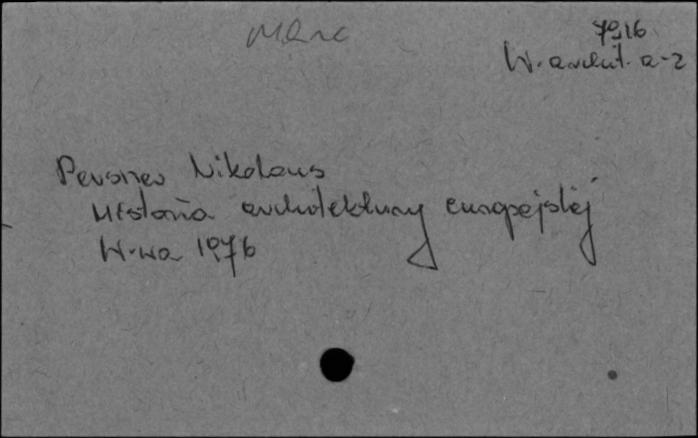 Marc
7916
W. archit. a-z
Pevsner Nikolaus
Historia architektury europejskiej
W-wa 1976